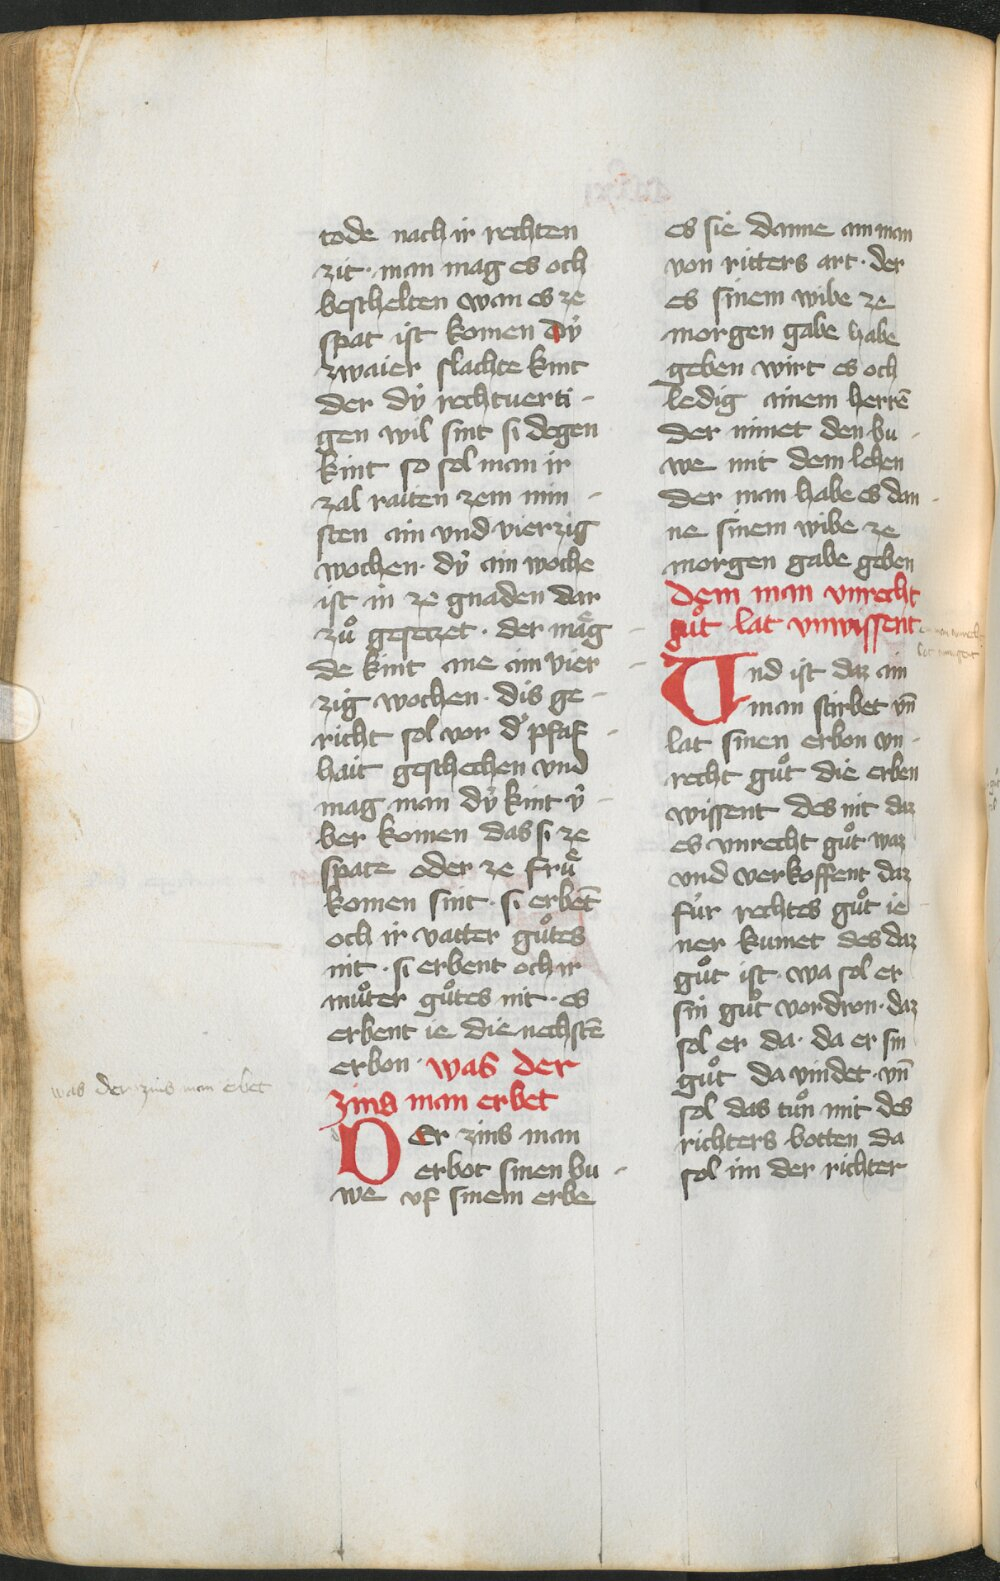 tode nach ir rechten
zit · man mag es och
beschelten wan es ze
spat ist komen dÿ
zwaier slachte kint
der dÿ rechtuerti -
gen wil sint si degen
kint so sol man ir
zal raiten zem min -
sten ain vnd vierzig
wochen · dÿ ain woche
ist in ze gnaden dar
zuͦ gesetzet · der maͤg -
de kint ane ain vier -
zig wochen · dis ge -
richt sol vor dˀ pfaf -
hait geschechen vnd
mag man dÿ kint v̈ -
ber komen das si ze
spate oder ze fruͤ
komen sint · si erbent̄
och ir vatter guͦtes
nit · si erbent och ir
muͦter guͦtes nit · es
erbent ie die nechstē
erbon · was der
zins man erbet
Der zins man
erbot sinen bu -
we vf sinem erbe
was der zins man erbet
es sie danne ain man
von ritters art · der
es sinem wibe ze
morgen gabe habe
geben wirt es och
ledig ainem herrē
der nimet den bu -
we mit dem lehen
der man habe es dan -
ne sinem wibe ze
morgen gabe geben
dem man vnrecht
guͦt lat vnwissent
Vnd ist daz ain
man stirbet vn̄
lat sinen erbon vn -
recht guͦt die erben
wissent des nit daz
es vnrecht guͦt waz
vnd verkoffent daz
für rechtes guͦt ie
ner kumet des daz
guͦt ist · wa sol er
sin guͦt vordron · daz
sol er da · da er sin
guͦt da vindet · vn̄
sol das tuͦn mit des
richters botten da
sol im der richter